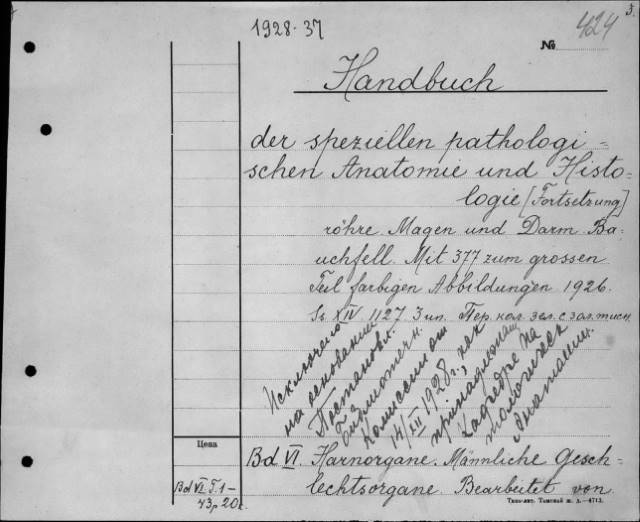 3.
424
1928-37
№
Handbuch
der speziellen pathologi-
schen Anatomie und Histo-
logie [Fortsetzung]
röhre. Magen und Darm. Ba-
uchfell. Mit 377 zum grossen
Teil farbigen Abbildungen 1926.
S. XIV. 1127. 3 ил. Пер. кол. зел. с зол. тисн.
Исключена
на основании
Постановл.
Библиотечн.
Комиссии от
14/XII 1928 г., как
принадлежащ.
Кафедре па
тологическ
Анатомии.
Цена
Bd VI. Harnorgane. Männliche Gesch-
lechtsorgane. Bearbeitet von
Bd VI T. 1-
43 р 20 к.
Типо-лит. Томской ж. д.—4713.